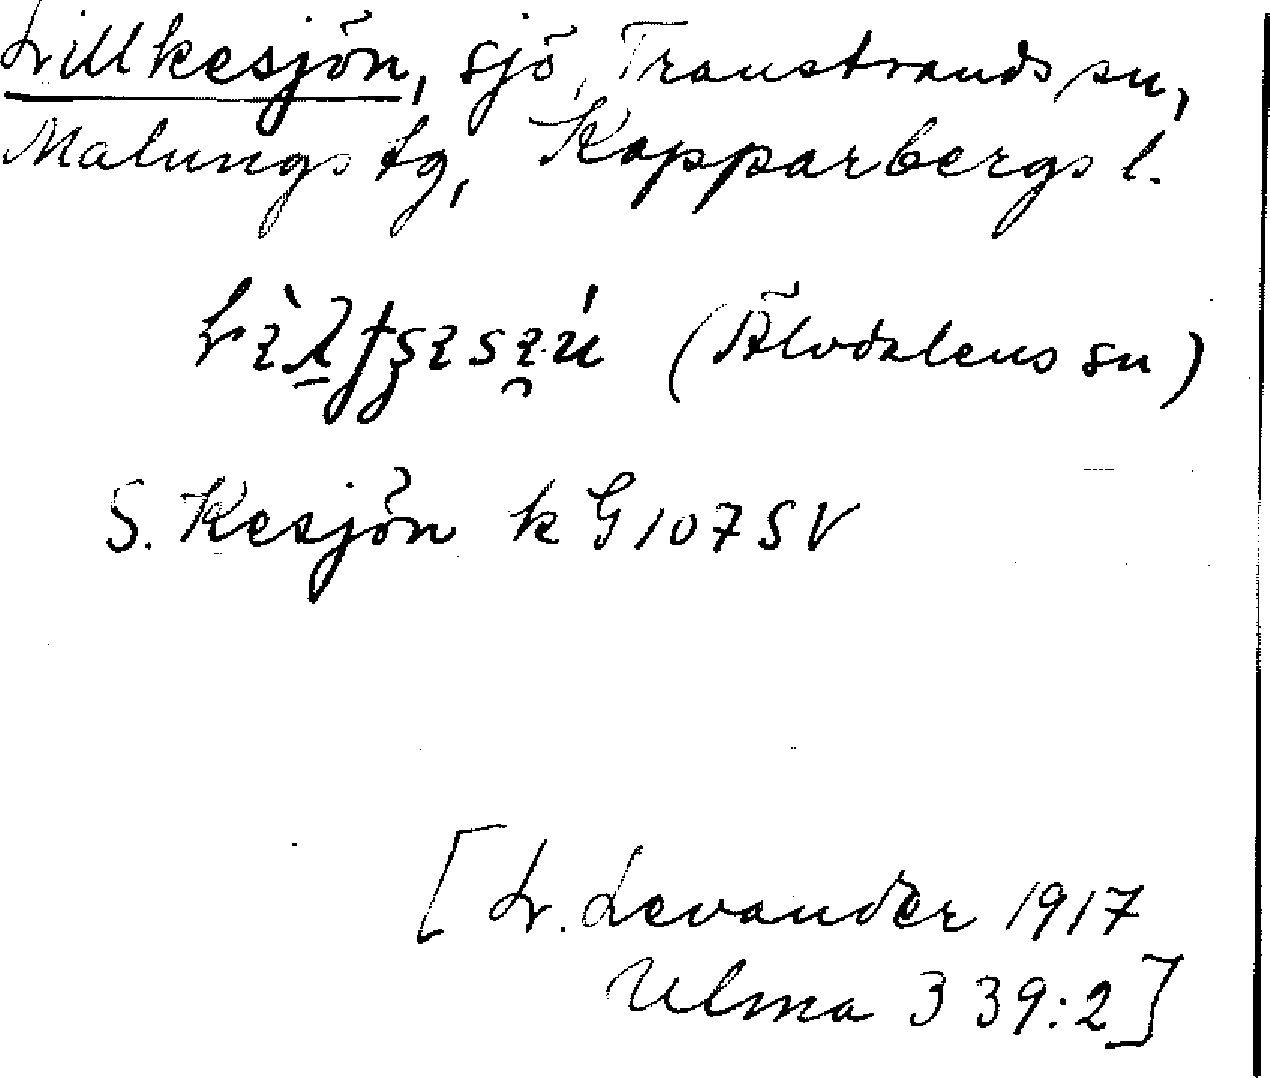 Lillkesjön, sjö, Transtrands sn,
Malungs tg, Kopparbergs l.
(Älvdalens sn)
S. Kesjön k G 107 SV
[L. Levander 1917
Ulma 339:2]